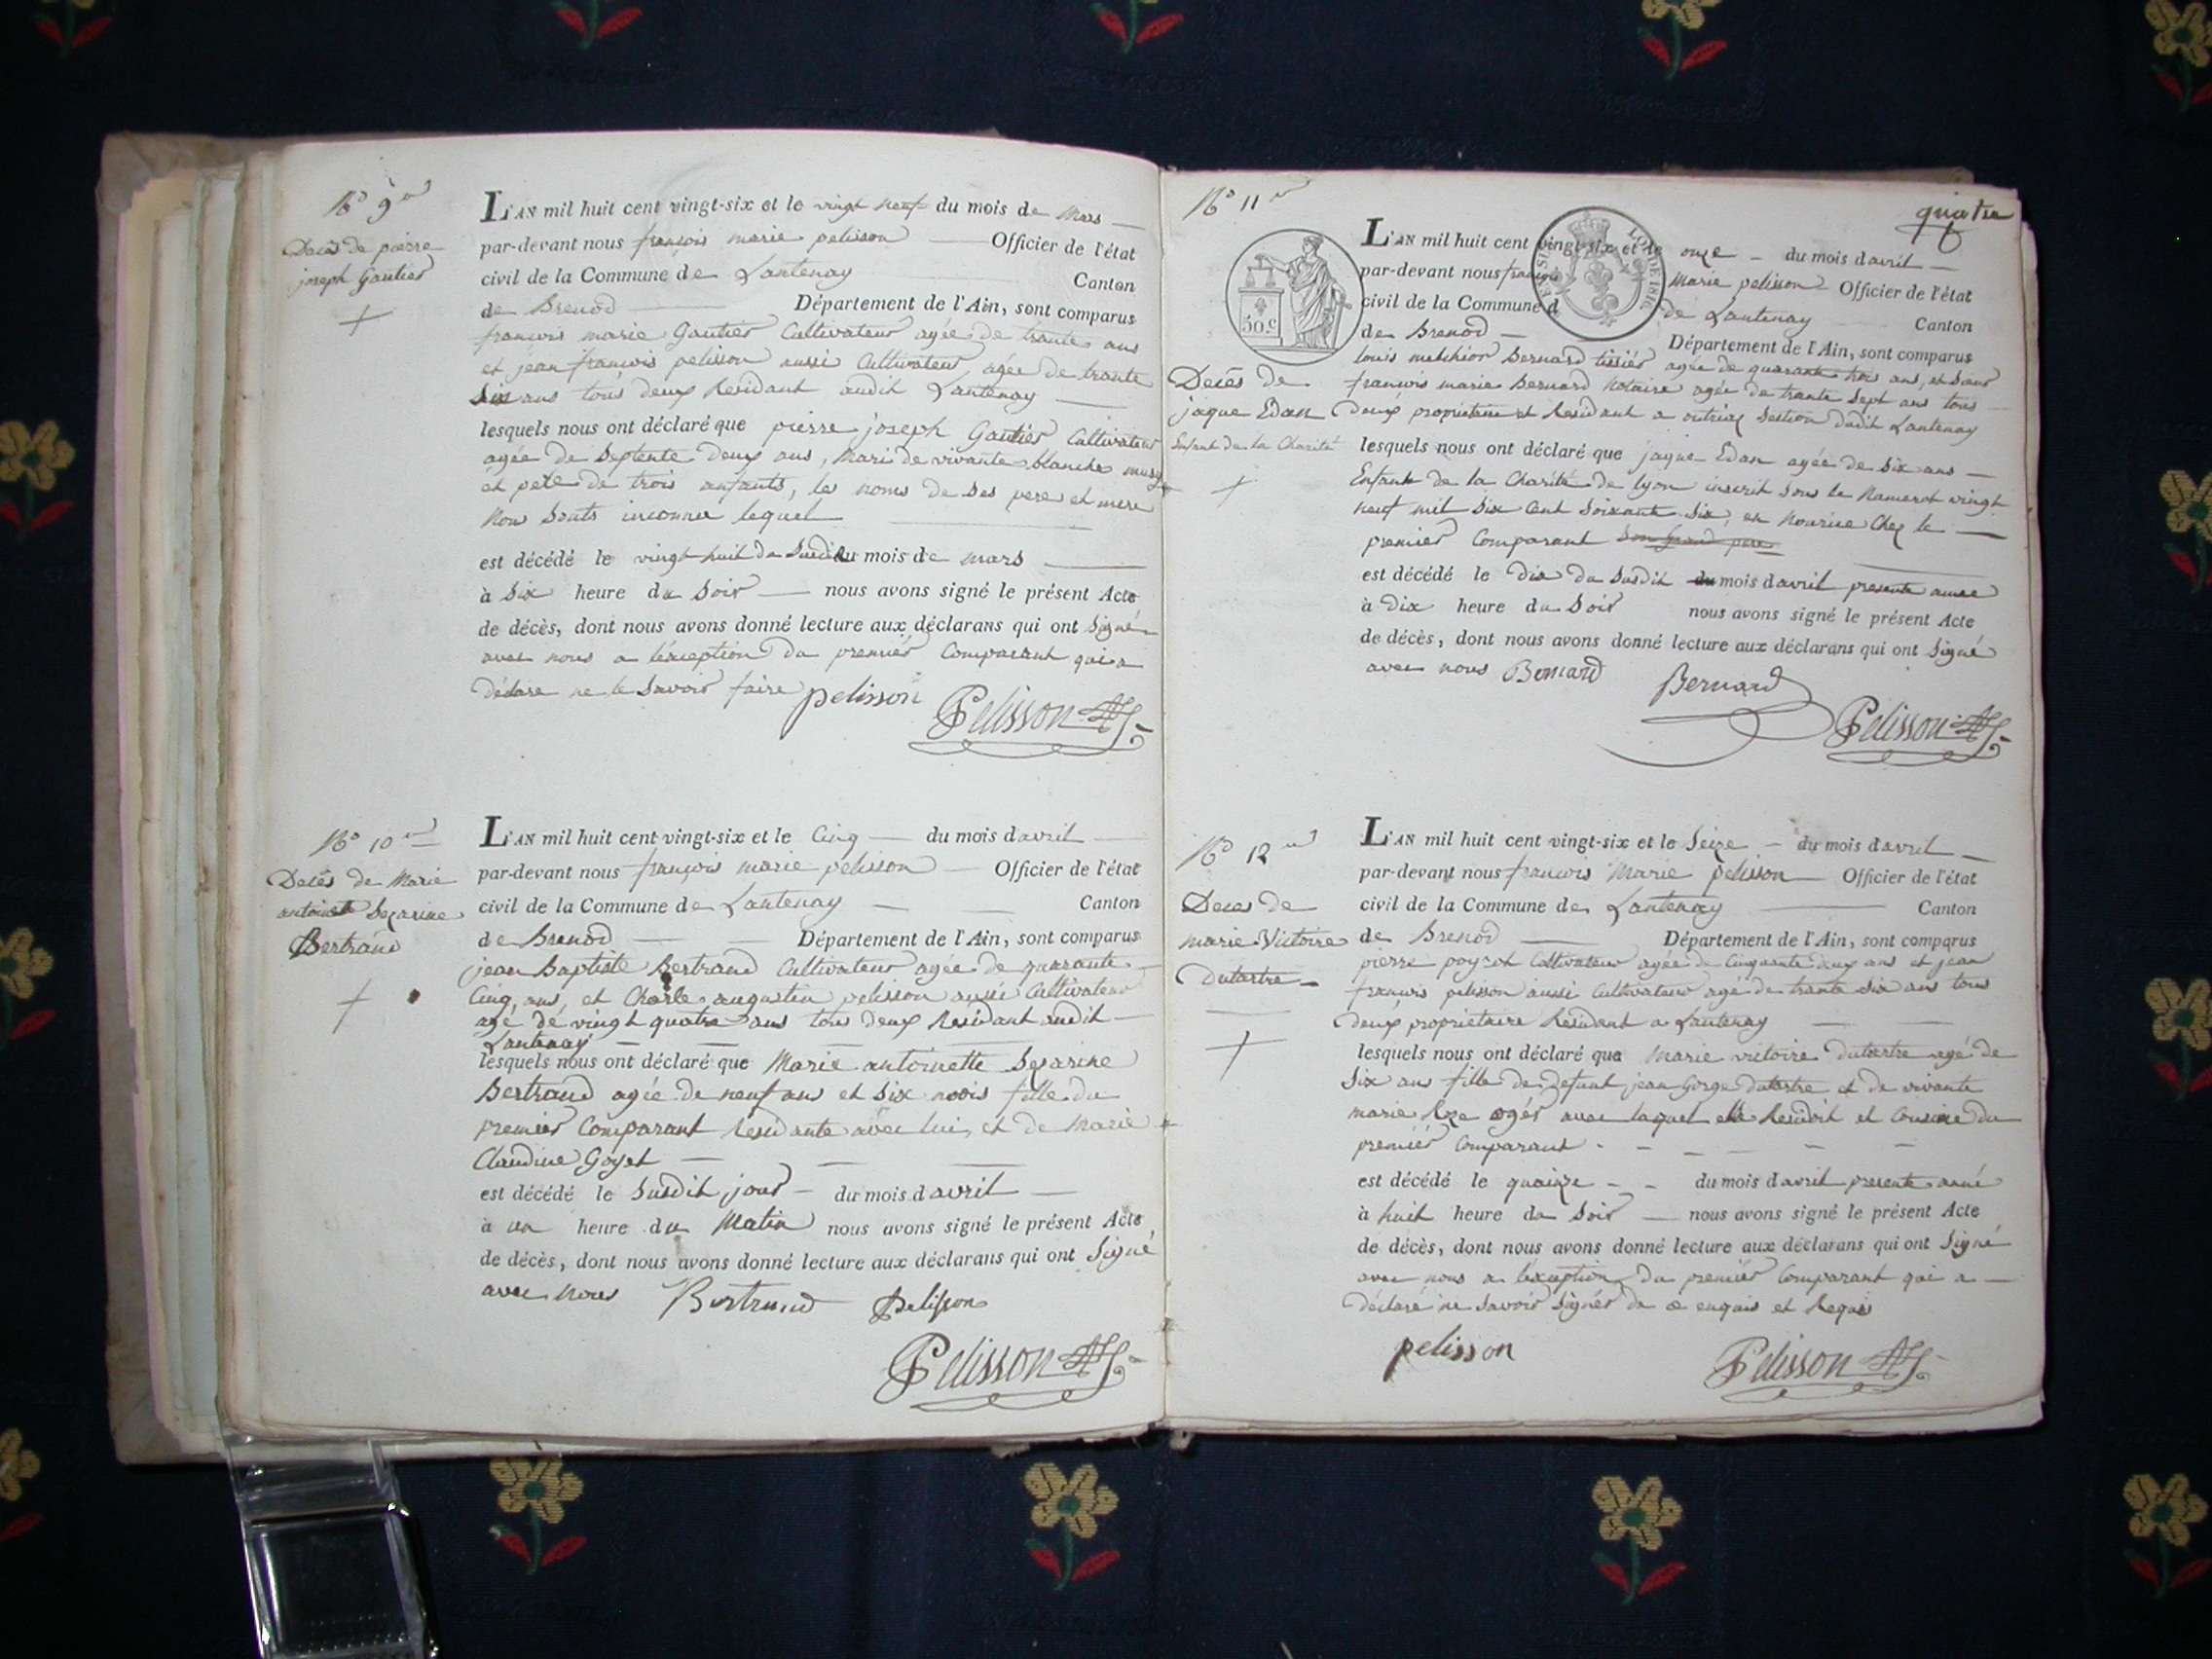 N° 9
Decès de pierre
joseph Gautier
L'AN mil huit cent vingt-six et le vingt neuf du mois de Mars
par-devant nous françois marie pelisson Officier de l'état
civil de la Commune de Lantenay Canton
de Brenod Département de l'Ain, sont comparus
françois marie Gautier Cultivateur agée de trante ans
et jean françois pelisson aussi Cultivateur, agée de trante
Six ans tous deux Residant audit Lantenay
lesquels nous ont déclaré que pierre joseph Gautier Cultivateur
agée de Septente deux ans, Mari de vivante blanche musy
et pere de trois anfants, les noms de Ses pere et mere
Nous Sonts inconnu lequel
est décédé le vingt huit du Susdit du mois de mars
à Six heure du Soir nous avons signé le présent Acte
de décès, dont nous avons donné lecture aux déclarans qui ont Signé
avec nous a l'exception du premier Comparant qui a
Déclare ne le Savoir faire pelisson
Pelisson
N° 10
Decès de Marie
antoinette Sezarine
Bertrand
L'AN mil huit cent vingt-six et le Cinq du mois d'avril
par-devant nous françois marie pelisson Officier de l'état
civil de la Commune de Lantenay Canton
de Brenod Département de l'Ain, sont comparus
jean Baptiste Bertrand Cultivateur agée de quarante
Cinq ans, et Charle augustin pelisson aussi Cultivateur
agé de vingt quatre ans tous deux Residant audit
Lantenay
lesquels nous ont déclaré que Marie antoinette Sezarine
Bertrand agée de neuf ans et Six mois fille du
premier Comparant Residante avec lui, et de Marie
Claudine Goyet
est décédé le Susdit jour du mois d'avril
à un heure du Matin nous avons signé le présent Acte
de décès, dont nous avons donné lecture aux déclarans qui ont Signé
avec nous Bertrand Pelisson
Pelisson
N° 11
quatre
50 c
LOI DE 1816
Decès de
jaque Edan
Enfant de la Charité
L'AN mil huit cent vingt-six et le onze du mois d'avril
par-devant nous françois Marie pelisson Officier de l'état
civil de la Commune de Lantenay Canton
de Brenod Département de l'Ain, sont comparus
louis melchior Bernard tissier agée de quarante trois ans, et Sieur
françois marie Bernard Notaire agée de trante Sept ans tous
Deux propriétaire et Residant a outriaz Section dudit Lantenay
lesquels nous ont déclaré que jaque Edan agée de Six ans
Enfant de la Charité de lyon inscrit Sous le Numerot vingt
neuf mil Six Cent Soixante Six, en Nourice Chez le
premier Comparant Son Grand pere
est décédé le Dix du Susdit du mois d'avril presente année
à Dix heure du Soir nous avons signé le présent Acte
de décès, dont nous avons donné lecture aux déclarans qui ont Signé
avec nous Bernard Bernard
Pelisson
N° 12
Deces de
marie Victoire
Dutartre
L'AN mil huit cent vingt-six et le Seize du mois d'avril
par-devant nous francois Marie pelisson Officier de l'état
civil de la Commune de Lantenay Canton
de Brenod Département de l'Ain, sont comparus
pierre poysot Cultivateur agée de Cinquante deux ans et jean
françois pelisson aussi Cultivateur agé de trante Six ans tous
Deux propriétaire Residant a Lantenay
lesquels nous ont déclaré que Marie victoire Dutartre agé de
Six ans fille de Defunt jean Gorge Dutartre et de vivante
marie Roze ogér avec laquel elle Residoit et Cousine du
premier Comparant
est décédé le quainze du mois d'avril presente anné
à huit heure du Soir nous avons signé le présent Acte
de décès, dont nous avons donné lecture aux déclarans qui ont Signé
avec nous a l'exception du premier Comparant qui a
Déclaré ne Savoir Signér de ce enquis et Requis
pelisson Pelisson